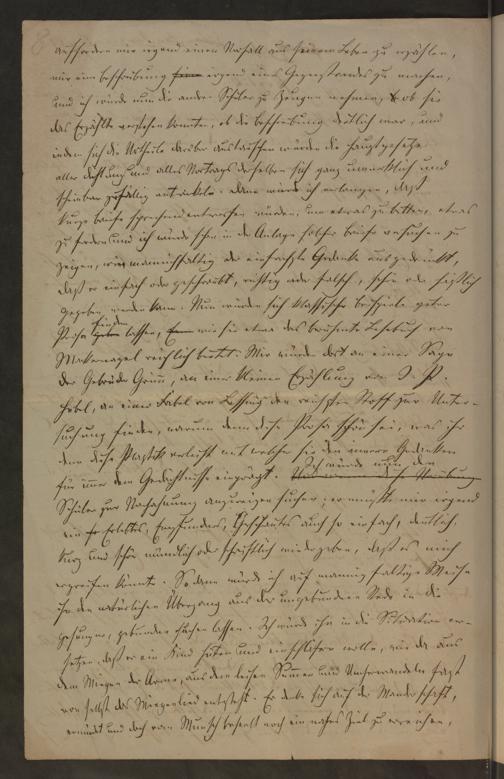 auffordern mir irgend einen Vorfall aus seinem Leben zu erzählen,
mir eine Beschreibung irgend eines Gegenstandes zu machen,
und ich würde nun die andern Schüler zu Zeugen nehmen, ob sie
das Erzählte verstehen konnten, ob die Beschreibung deutlich war, und
indem sich die Urtheile darüber austauschten würden die Hauptgesetze
aller Dichtung und alles Vortrags derselben sich ganz unmerklich und
scheinbar zufällig entwickeln. Dann würde ich verlangen, daß
kurze Briefe sprechend entworfen würden, um etwas zu bitten, etwas
zu fordern und ich würde schon in der Anlage solcher Briefe versuchen zu
zeigen, wie mannichfaltig der einfachste Gedanke ausgedrückt,
daß er einfach oder geschraubt, richtig oder falsch, schön oder häßlich
gegeben werden kann. Nun würden sich klassische Beispiele guter
Prosa finden lassen, wie sie etwa das berühmte Lesebuch von
Wakernagel reichlich bietet. Wir würden dort an einer Sage
der Gebrüder Grimm, an einer kleinen Erzählung von J. P.
Hebel, an einer Fabel von Lessing den reichsten Stoff zur Unter-
suchung finden, warum denn diese Prosa schön sei, was ihr
denn diese Plastik verleiht mit welcher sie den innern Gedanken
für immer dem Gedächtnisse einprägt. Ich würde nun den
Schüler zur Nachahmung anzureizen suchen; er müßte mir irgend
ein Erlebtes, Empfundenes, Geschautes auch so einfach, deutlich,
kurz und schön mündlich oder schriftlich wiedergeben, daß es mich
ergreifen könnte. Sodann würde ich auf mannigfaltige Weise
ihn den natürlichen Übergang aus der ungebundenen Rede in die
gebundene suchen lassen. Ich würde ihn in die Situation ver-
setzen, daß er ein Kind hüten und einschläfern wolle, wie da aus
dem Wiegen der Arme, aus dem leisen Summen und Umherwandeln fast
von selbst das Wiegenlied entsteht. Er denke sich auf der Wanderschaft,
ermüdet und doch vom Wunsch beseelt noch ein nahes Ziel zu erreichen,